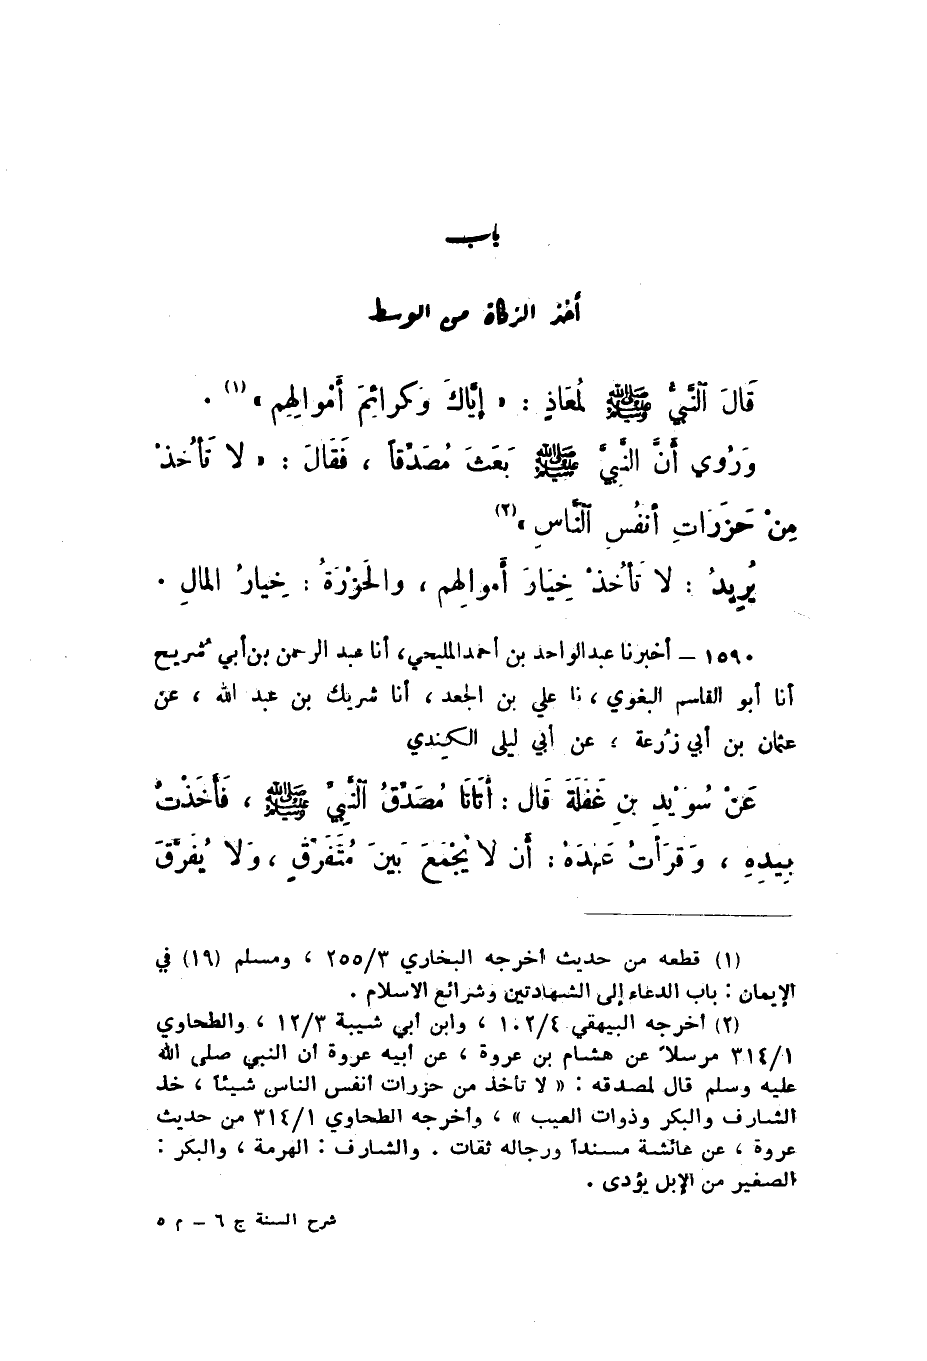 باب
أخذ الزكاة من الوسط
قَالَ ٱلنَّبيُّ ﷺ لمُعَاذٍ : « إيَّاكَ وَكرائِمَ أَمْوالِهِم »(١) .
وَرُوي أَنَّ النَّبيَّ ﷺ بَعَثَ مُصَدِّقاً ، فَقَالَ : « لا تَأْخُذْ
مِنْ حَزَرَاتِ أنفُسِ ٱلنَّاسِ »(٢)
يُريدُ : لا تَأخُذْ خِيَارَ أَموالِهم ، والحَزْرَةُ : خِيارُ المَالِ .
١٥٩٠ – أخبرنا عبدالواحد بن أحمدالمليحي، أنا عبد الرحمن بن أبي شُريح
أنا أبو القاسم البغوي ، نا علي بن الجعد ، أنا شريك بن عبد الله ، عن
عثمان بن أبي زُرعة ، عن أبي ليلى الكِندي
عَنْ سُوَيْدِ بنِ غَفَلَةَ قال : أَتَانَا مُصَدِّقُ ٱلنَّبِيِّ ﷺ ، فَأَخَذْتُ
بِيدِهِ ، وَقرَأتُ عَهدَهُ : أن لا يُجْمَعَ بَينَ مُتَفَرِّقٍ ، وَلا يُفَرَّقَ
(١) قطعه من حديث أخرجه البخاري ٢٥٥/٣ ، ومسلم (١٩) في
الإيمان : باب الدعاء إلى الشهادتين وشرائع الاسلام .
(٢) أخرجه البيهقي ١٠٢/٤ ، وابن أبي شيبة ١٢/٣ ، والطحاوي
٣١٤/١ مرسلاً عن هشام بن عروة ، عن أبيه عروة أن النبي صلى الله
عليه وسلم قال لمصدقه : « لا تأخذ من حزرات أنفس الناس شيئاً ، خذ
الشارف والبكر وذوات العيب » ، وأخرجه الطحاوي ٣١٤/١ من حديث
عروة ، عن عائشة مسنداً ورجاله ثقات . والشارف : الهرمة ، والبكر :
الصغير من الإبل يؤدى .
شرح السنة ج ٦ – م ٥